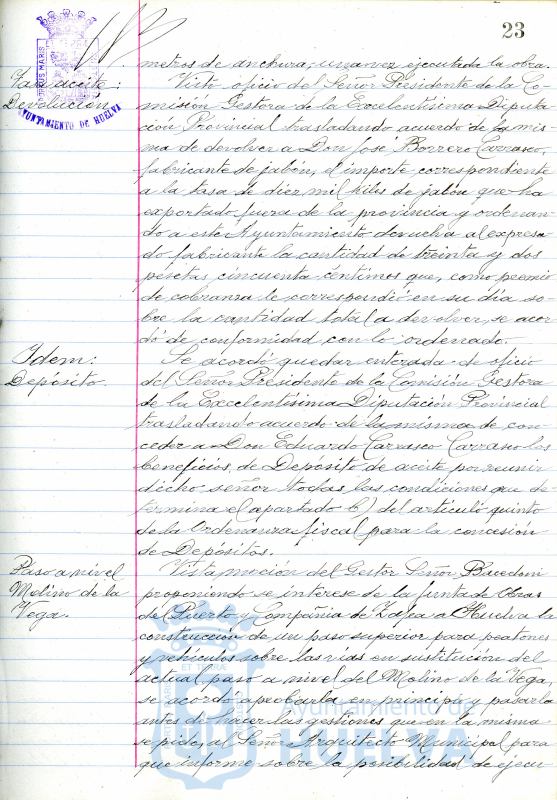 23
metros de anchura, una vez ejecutada la obra.
Tasa aceite:
Devolución
AYUNTAMIENTO DE HUELVA
Visto oficio del Señor Presidente de la Co-
misión Gestora de la Excelentísima Diputa-
ción Provincial trasladando acuerdo de la mis-
ma de devolver a Don José Borrero Carrasco,
fabricante de jabón, el importe correspondiente
a la tasa de diez mil kilos de jabón que ha
exportado fuera de la provincia y ordenan-
do a este Ayuntamiento devuelva al expresa-
do fabricante la cantidad de treinta y dos
pesetas cincuenta céntimos que, como premio
de cobranza le correspondió en su día so-
bre la cantidad total a devolver, se acor-
dó de conformidad con lo ordenado.
Idem:
Depósito.
Se acordó quedar enterada de oficio
del Señor Presidente de la Comisión Gestora
de la Excelentísima Diputación Provincial
trasladando acuerdo de la misma de con-
ceder a Don Eduardo Carrasco Carrasco los
beneficios de Depósito de aceite por reunir
dicho señor todas las condiciones que de-
termina el apartado b) del artículo quinto
de la Ordenanza fiscal para la concesión
de Depósitos.
Paso a nivel
Molino de la
Vega.
Vista moción del Gestor Señor Bacedoni
proponiendo se interese de la Junta de Obras
de Puerto y Compañía de Zafra a Huelva la
construcción de un paso superior para peatones
y vehículos sobre las vias en sustitución del
actual paso a nivel del Molino de la Vega,
se acordó aprobarla en principio y pasarla
antes de hacer las gestiones que en la misma
se pide, al Señor Arquitecto Municipal para
que informe sobre la posibilidad de ejecu-
Ayuntamiento de
HUELVA